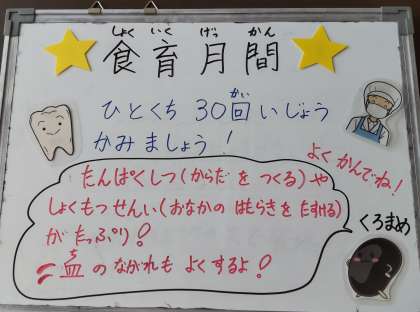 しょくいくげっかん
食育月間
ひとくち 30回いじょう
かい
かみましょう!
よくかんでね!
たんぱくしつ(からだを つくる)や
しょくもつせんい(おなかの はたらきを たすける)
がたっぷり!
ち
血のながれも よくするよ!
くろまめ